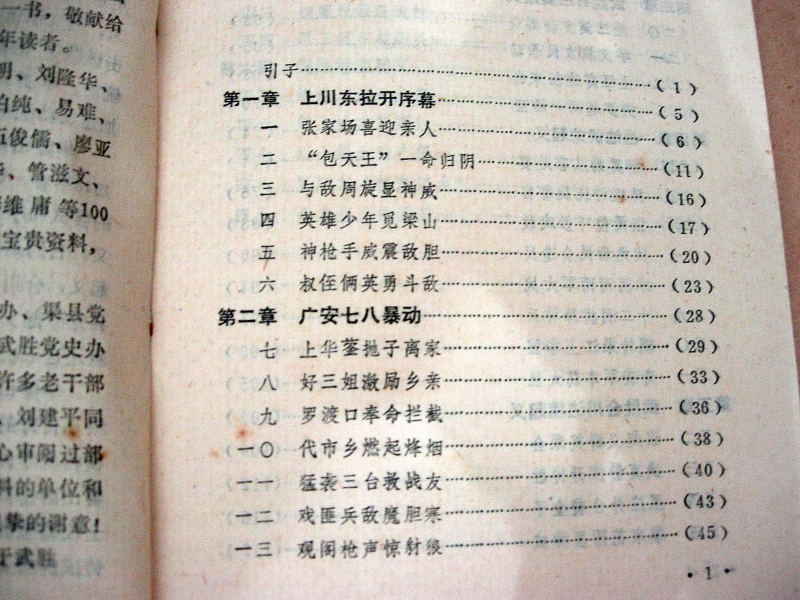 一书，敬献给
年读者。
明、刘隆华、
白纯、易难、
伍俊儒、廖亚
管滋文、
维庸等100
宝贵资料，
办、渠县党
武胜党史办
许多老干部
、刘建平同
心审阅过部
料的单位和
挚的谢意！
于武胜
引子……………………………………（1）
第一章 上川东拉开序幕……………………（5）
一 张家场喜迎亲人……………………（6）
二 “包天王”一命归阴………………（11）
三 与敌周旋显神威……………………（16）
四 英雄少年觅梁山……………………（17）
五 神枪手威震敌胆……………………（20）
六 叔侄俩英勇斗敌……………………（23）
第二章 广安七八暴动……………………（28）
七 上华蓥抛子离家……………………（29）
八 好三姐激励乡亲……………………（33）
九 罗渡口奉命拦截……………………（36）
一〇 代市乡燃起烽烟……………………（38）
一一 猛袭三台救战友……………………（40）
一二 戏匪兵敌魔胆寒……………………（43）
一三 观阁枪声惊豺狼……………………（45）
·1·